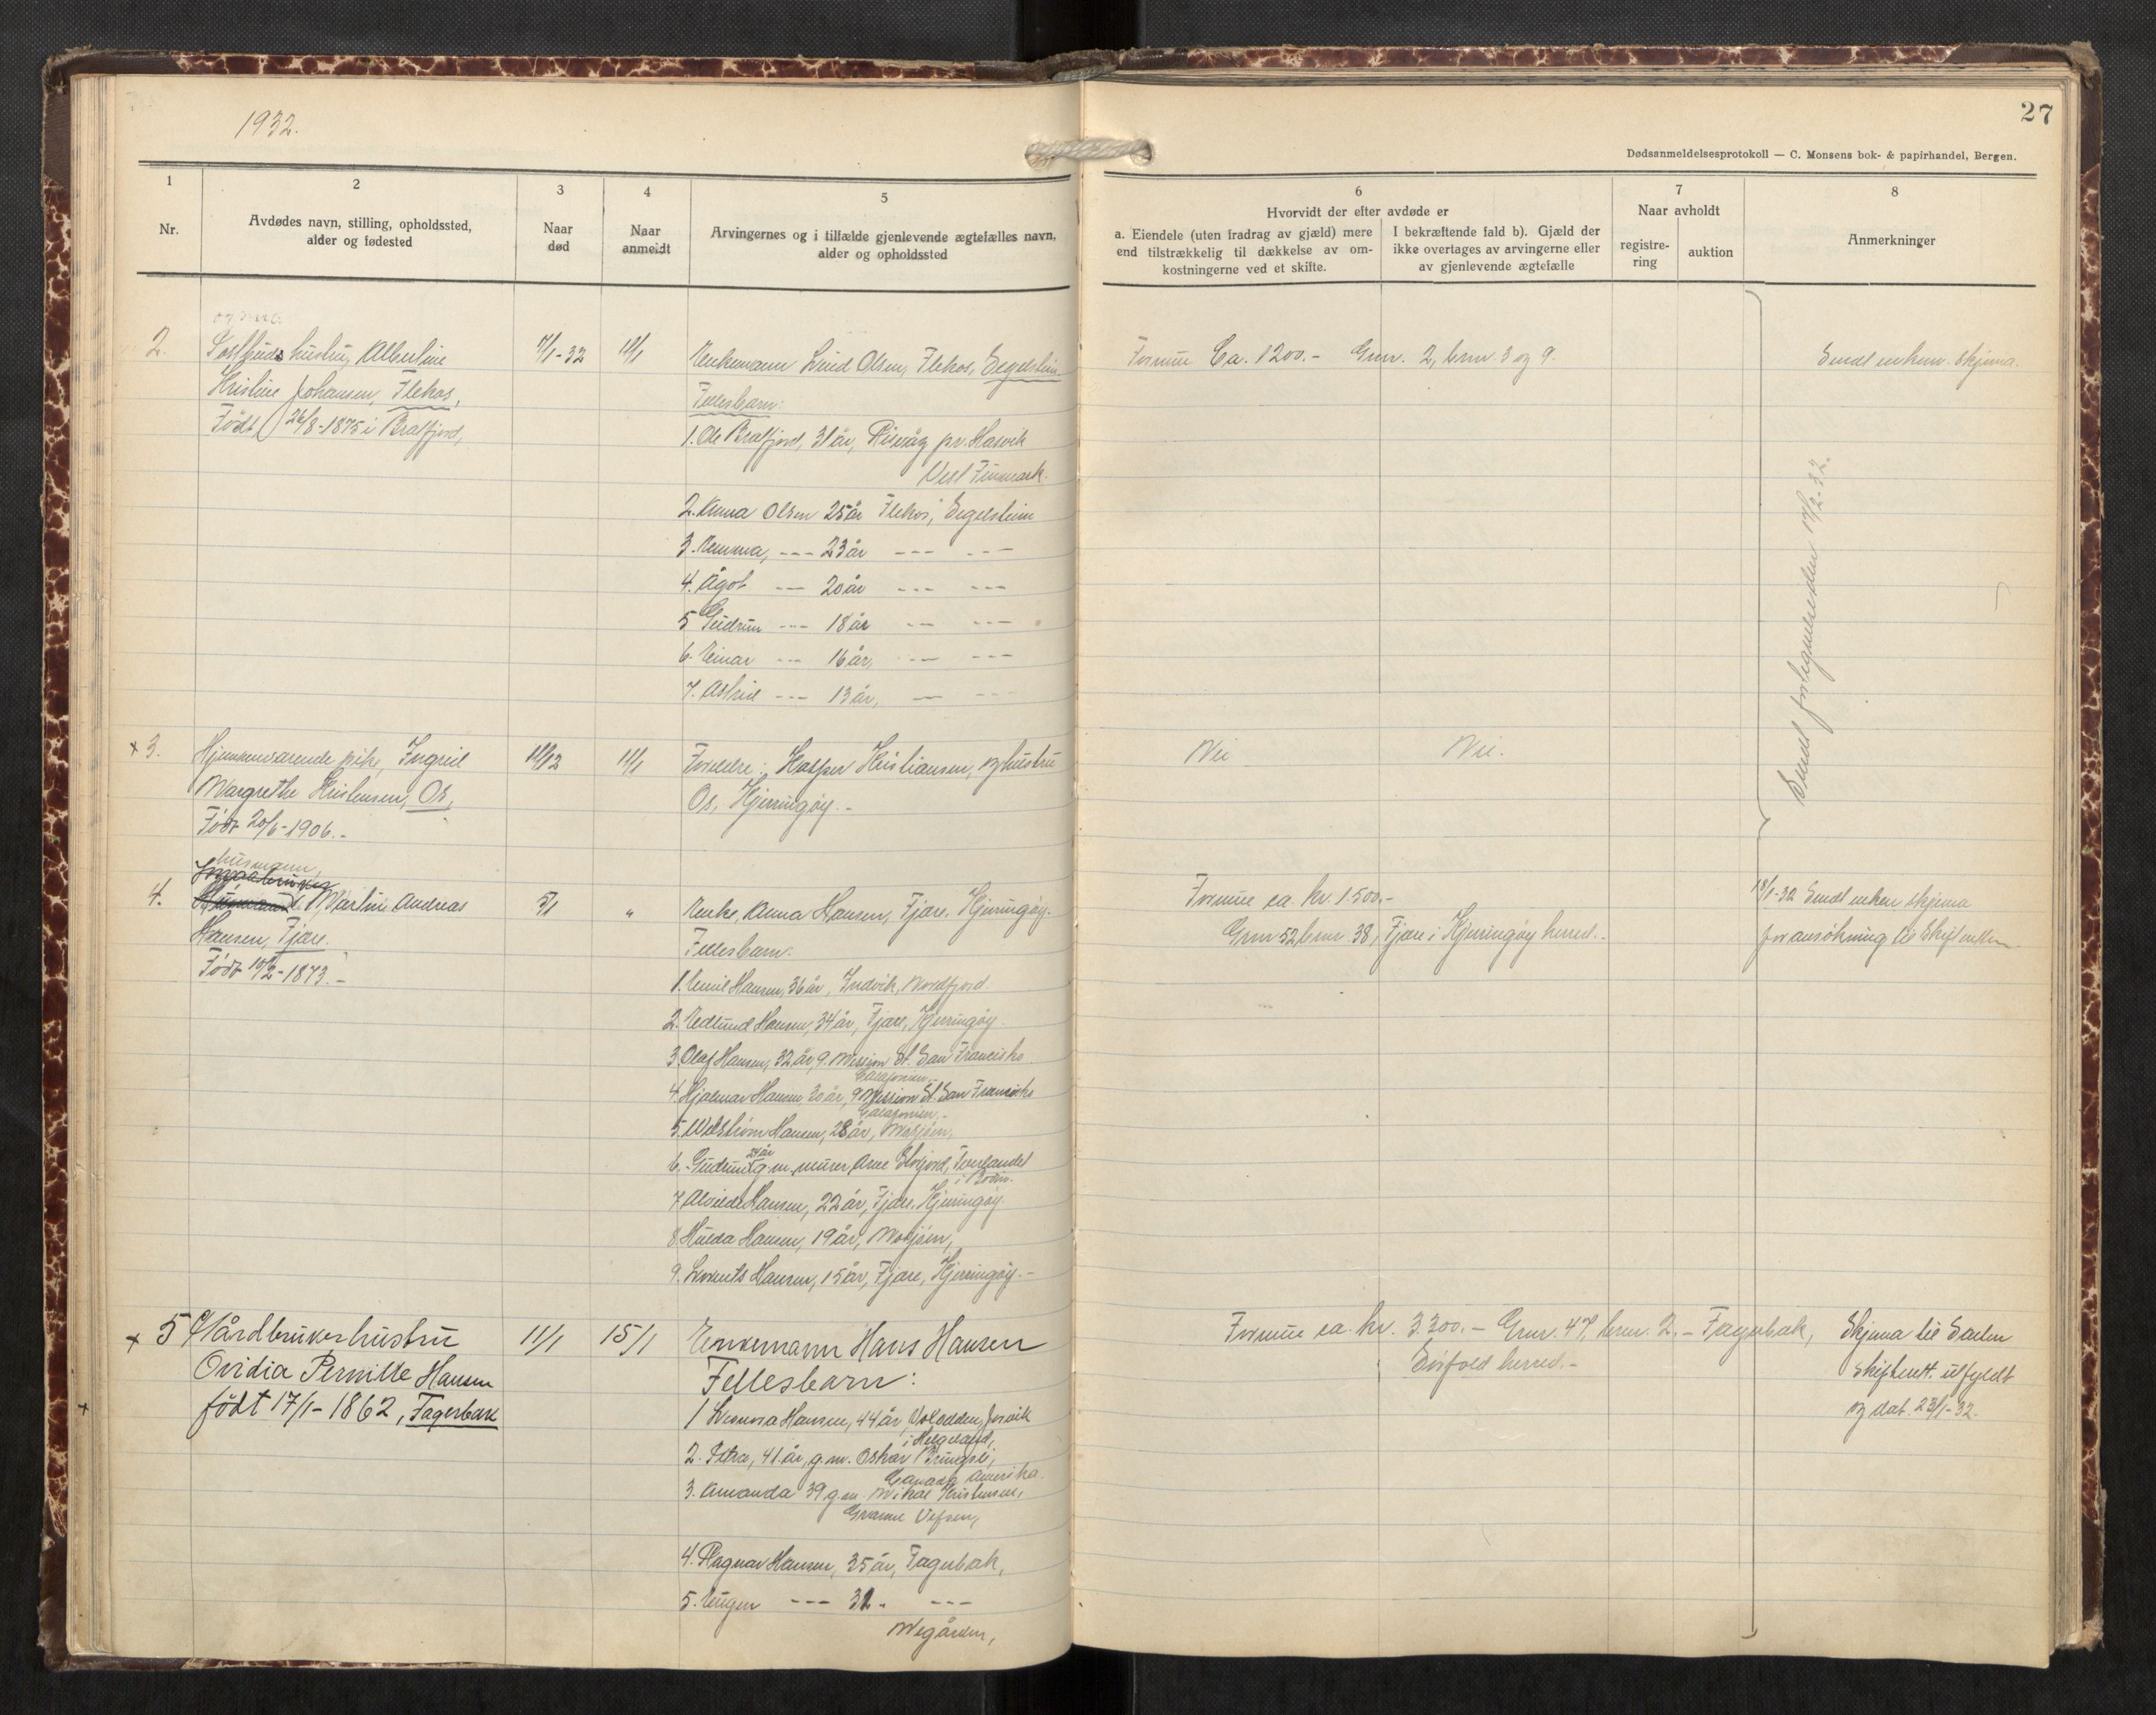 1932.
27
Dødsanmeldelsesprotokoll — C. Monsens bok- & papirhandel, Bergen.
1
2
3
4
5
6
7
8
Nr.
Avdødes navn, stilling, opholdssted,
alder og fødested
Naar
død
Naar
anmeldt
Arvingernes og i tilfælde gjenlevende ægtefælles navn,
alder og opholdssted
Hvorvidt der efter avdøde er
a. Eiendele (uten fradrag av gjæld) mere
end tilstrækkelig til dækkelse av om-
kostningerne ved et skifte.
I bekræftende fald b). Gjæld der
ikke overtages av arvingerne eller
av gjenlevende ægtefælle
Naar avholdt
registre-
ring
auktion
Anmerkninger
2.
hustru, Albertine
Kristine Johansen, Flekos,
Født 26/8-1875 i Bralfjord,
4/1-32
11/1
Enkemann Lind Olsen, Flekos, Segelstein
Fellesbarn:
1. Ole Bralfjord, 31 år, Risvåg pr. Hasvik
Vest Finnmark.
2. Anna Olsen 25 år Flekos, Segelstein
3. Emma, --- 23 år --- ---
4. Ågot --- 20 år --- ---
5 Gudrun --- 18 år --- ---
6. Einar --- 16 år, --- ---
7. Astrid --- 13 år, --- ---
Formue Ca. 1200.- Gnr. 2, bnr. 3 og 9.
Sendt enkem. skjema.
Sendt fortegnelse 19/2-32.
x 3.
Hjemmeværende pike, Ingrid
Margrethe Kristensen, Os,
Født 20/6-1906.-
11/1
Foreldre: Kasper Kristiansen, og hustru
Os, Kjerringøy.-
Nei
Nei.
4.
husmann,
Martin Andreas
Hansen, Fjære.
Født 10/2-1873.-
5/1
"
Enke, Anna Hansen, Fjære, Kjerringøy.
Fellesbarn:
1. Emil Hansen, 36 år, Indvik, Nordfjord.
2. Edlund Hansen, 34 år, Fjære, Kjerringøy.
3. Olaf Hansen, 32 år, 9. Mission St. San Francisko
Calafonien.-
4. Hjalmar Hansen, 30 år, 9 Mission St. San Francisko
Calafonien.-
5. Hansen, 28 år, Mosjøen,
6. Gudrun, 24 år g.m. murer Arne, Tverlandet
i Bodin.
7 Alvilde Hansen, 22 år, Fjære, Kjerringøy.
8. Hulda Hansen, 19 år, Mosjøen,
9. Lorents Hansen, 15 år, Fjære, Kjerringøy.-
Formue ca. kr. 1.500.-
Gnr 52 bnr. 38, Fjære i Kjerringøy herred.-
18/1-32 Sendt enken skjema
for ansøkning til Skifteretten.
x 5
Gårdbrukerhustru
Ovidia Pernille Hansen
født 17/1-1862, Fagerbak
11/1
15/1
Enkemann Hans Hansen
Fellesbarn:
1 Hansen, 44 år,
i Helgeland,
2. Petra, 41. år, g.m. Oskar Bringsli,
Canada Amerika.
3. Amanda 39 g.m. Mikal Kristensen,
Vefsen,
4. Ragnar Hansen, 35 år, Fagerbak,
5. Eugen --- 31. ---
Megården,
Formue ca. kr. 3.300.- Gnr. 47, bnr. 2.- Fagerbak,
Sørfold herred.-
Skjema til Salten
skifterett. utfyldt
og dat. 23/1-32.
x